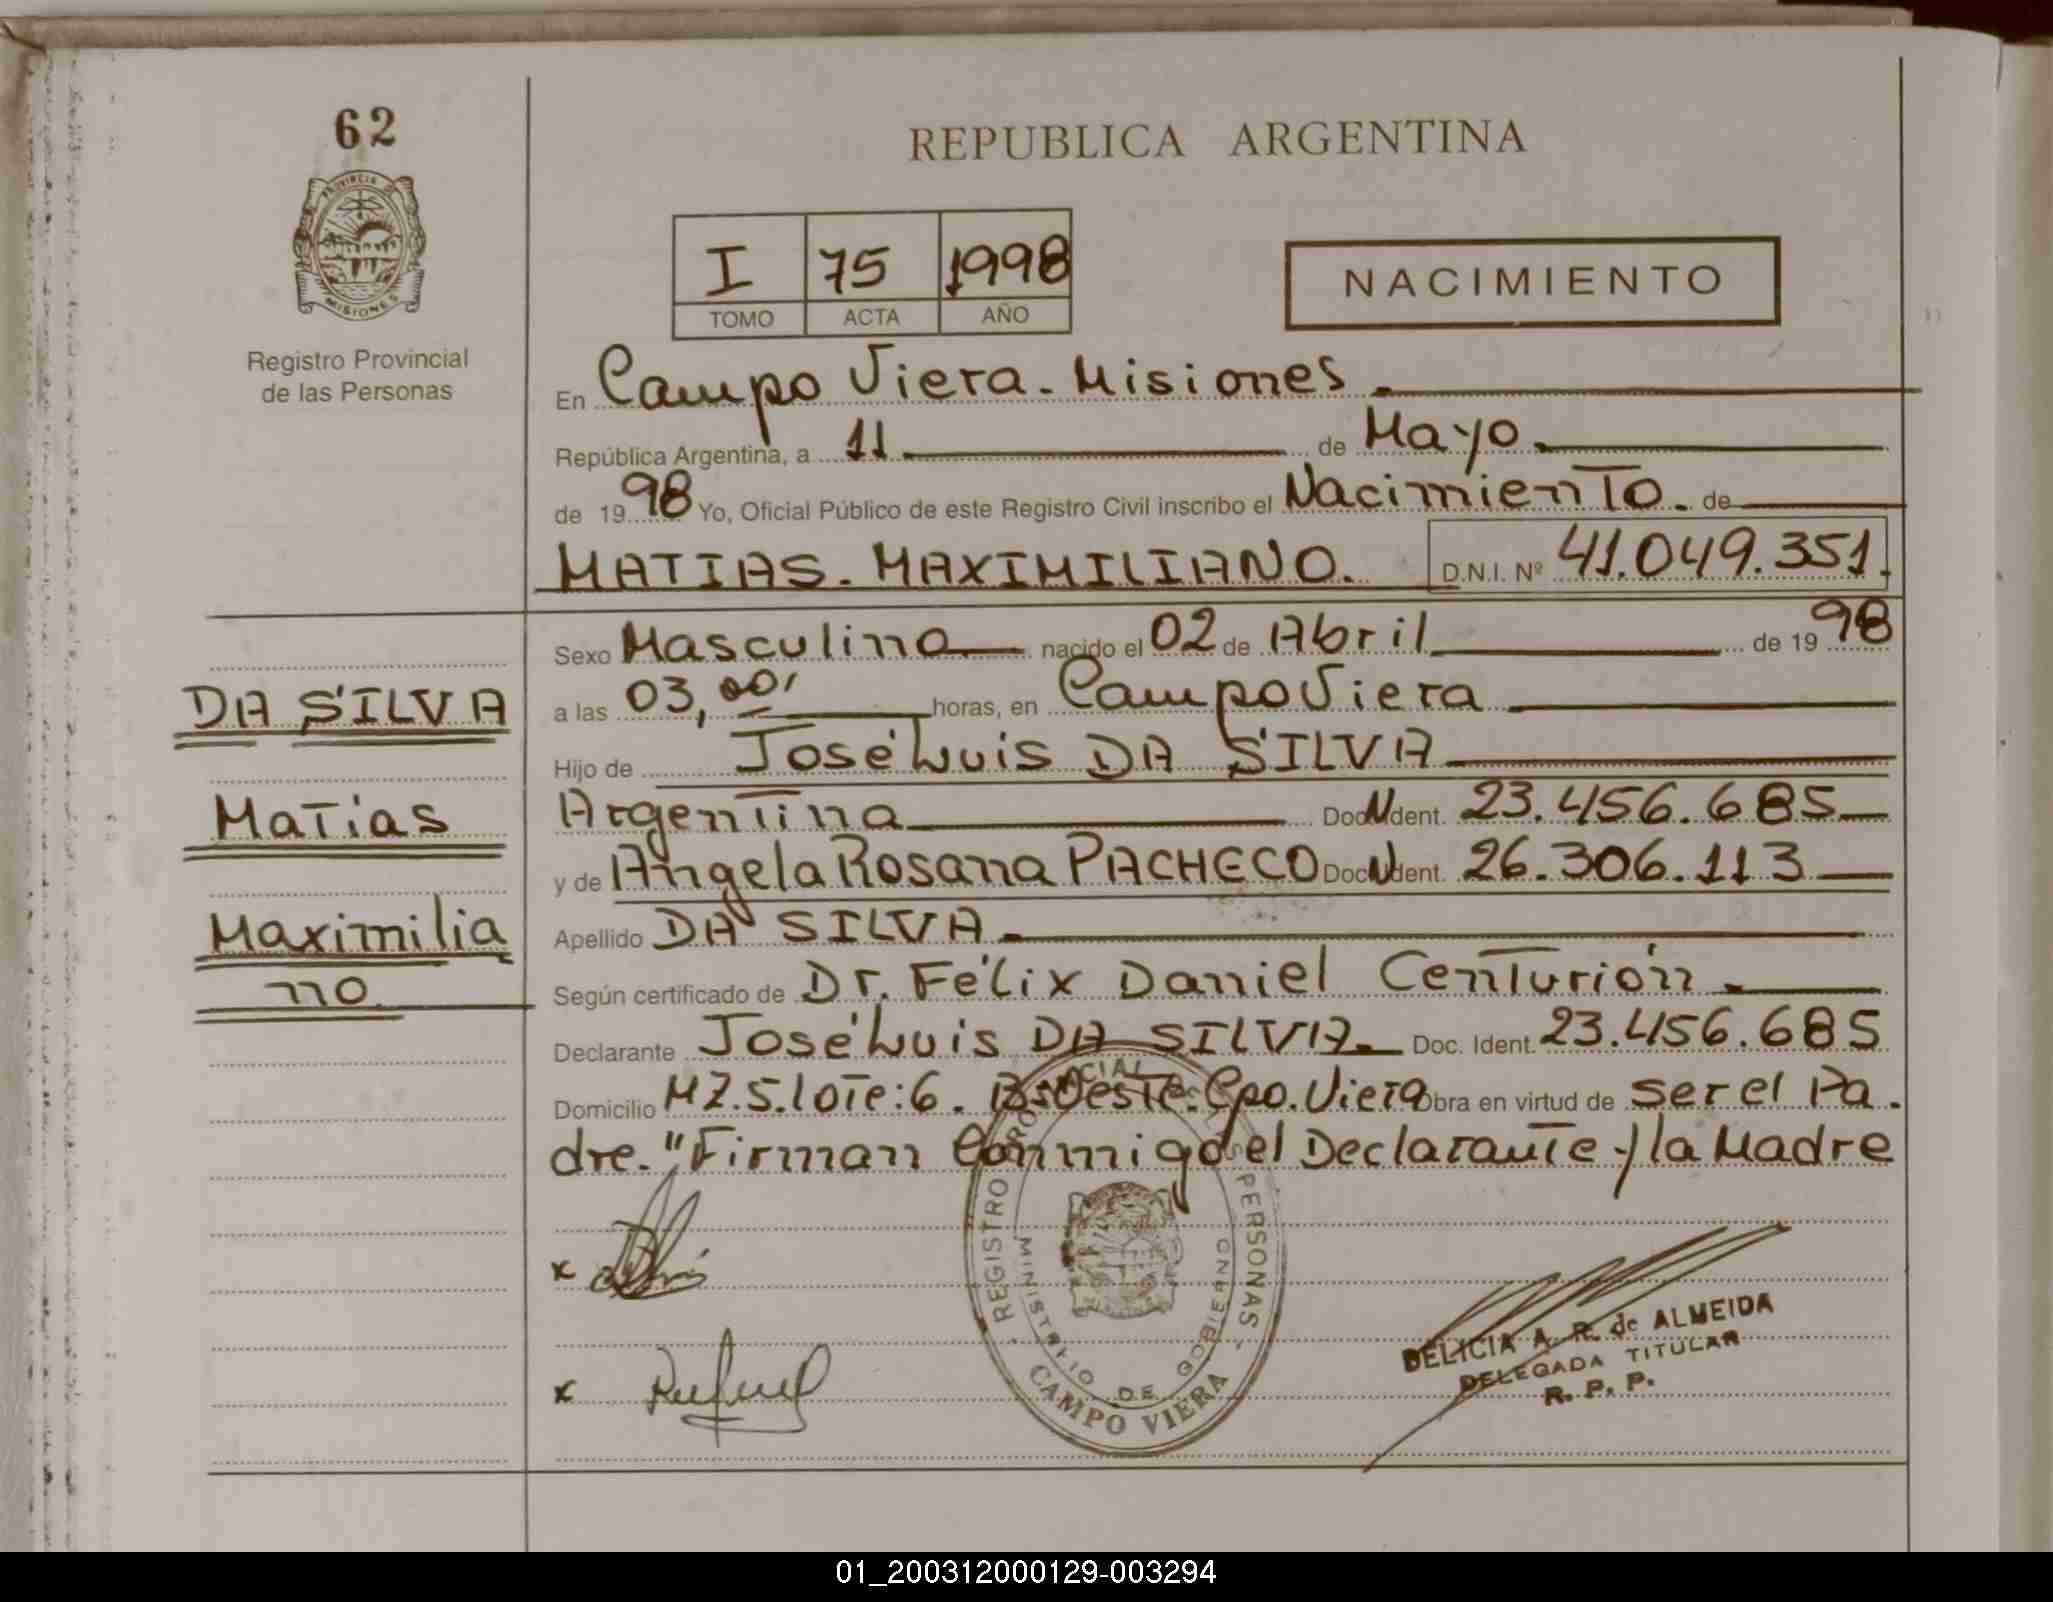 62
PROVINCIA DE
MISIONES
Registro Provincial
de las Personas
REPUBLICA ARGENTINA
I 75 1998
TOMO ACTA AÑO
NACIMIENTO
En Campo Viera - Misiones.
República Argentina, a 11 de Mayo.
de 1998 Yo, Oficial Público de este Registro Civil inscribo el Nacimiento. de
MATIAS. MAXIMILIANO. D.N.I. Nº 41.049.351.
Sexo Masculino nacido el 02 de Abril de 1998
a las 03,00, horas, en Campo Viera
Hijo de José Luis DA SILVA
Argentina Doc N Ident. 23.456.685
y de Angela Rosana PACHECO Doc N Ident. 26.306.113
Apellido DA SILVA.
Según certificado de Dr. Félix Daniel Centurión.
Declarante José Luis DA SILVA. Doc. Ident. 23.456.685
Domicilio MZ.5.lote:6. Bº Oeste. Cpo. Viera Obra en virtud de ser el Pa.
dre. "Firman Conmigo el Declarante y la Madre
DA SILVA
Matias
Maximilia
no.
x
x
REGISTRO PROVINCIAL DE LAS PERSONAS
MINISTERIO DE GOBIERNO
CAMPO VIERA
DELICIA A. R. de ALMEIDA
DELEGADA TITULAR
R. P. P.
01_200312000129-003294